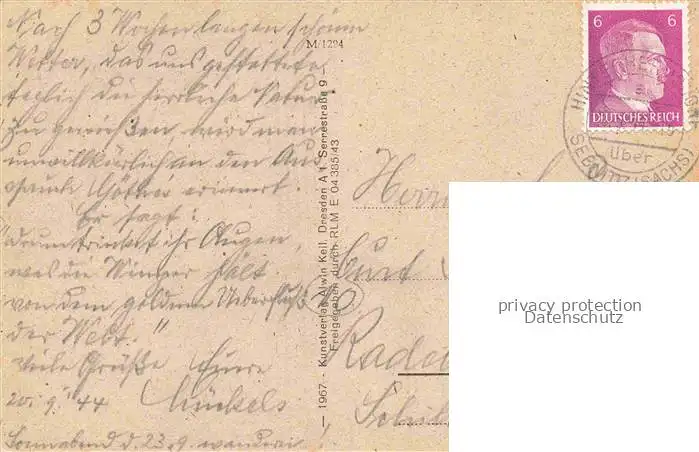 Nach 3 Wochen langen schönem
Wetter, das uns gestattete
täglich die herrliche Natur
zu genießen, wird man
unwillkürlich an den Aus
spruch Göthes erinnert.
Er sagt:
"Drum trinket ihr Augen,
was die Wimper hält
von dem goldnen Ueberfluß
der Welt."
Viele Grüße Eure
20. 9. 44
Sonnabend d. 23.9.
M/1294
— 1967 - Kunstverlag Alwin Keil, Dresden A 1, Serrestraße 9 —
Freigegeben durch RLM E 04385/43
6 6
DEUTSCHES REICH
über
SEBNITZ (SACHS)
Herrn
Curt
Rade
privacy protection
Datenschutz